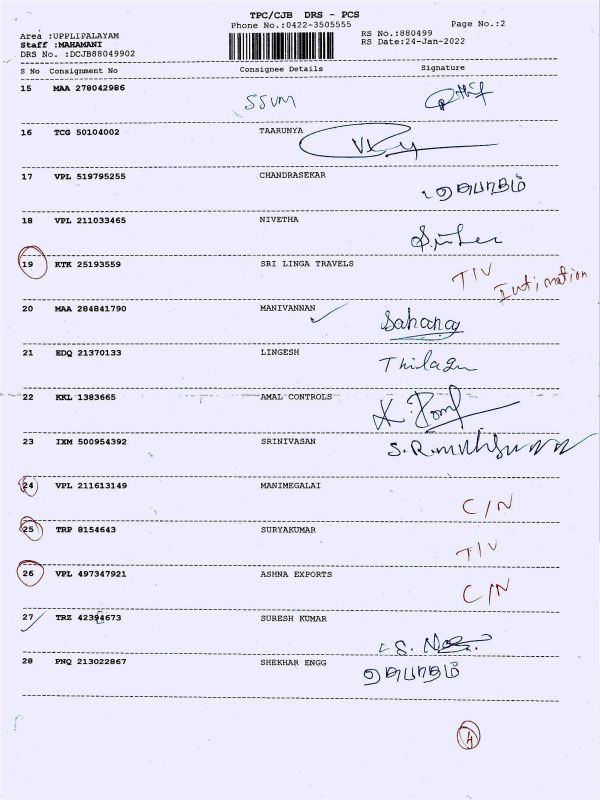 TPC/CJB DRS - PCS
Phone No.:0422-3505555 Page No.:2
Area :UPPLIPALAYAM RS No.:880499
Staff :MAHAMANI RS Date:24-Jan-2022
DRS No. :DCJB88049902
S No Consignment No Consignee Details Signature
15 MAA 278042986 SSVM
16 TCG 50104002 TAARUNYA
17 VPL 519795255 CHANDRASEKAR
18 VPL 211033465 NIVETHA
19 KTK 25193559 SRI LINGA TRAVELS T/V Intimation
20 MAA 284841790 MANIVANNAN Sahana
21 EDQ 21370133 LINGESH Thilagu
22 KKL 1383665 AMAL CONTROLS
23 IXM 500954392 SRINIVASAN
24 VPL 211613149 MANIMEGALAI C/N
25 TRP 8154643 SURYAKUMAR T/V
26 VPL 497347921 ASHNA EXPORTS C/N
27 TRZ 42394673 SURESH KUMAR
28 PNQ 213022867 SHEKHAR ENGG